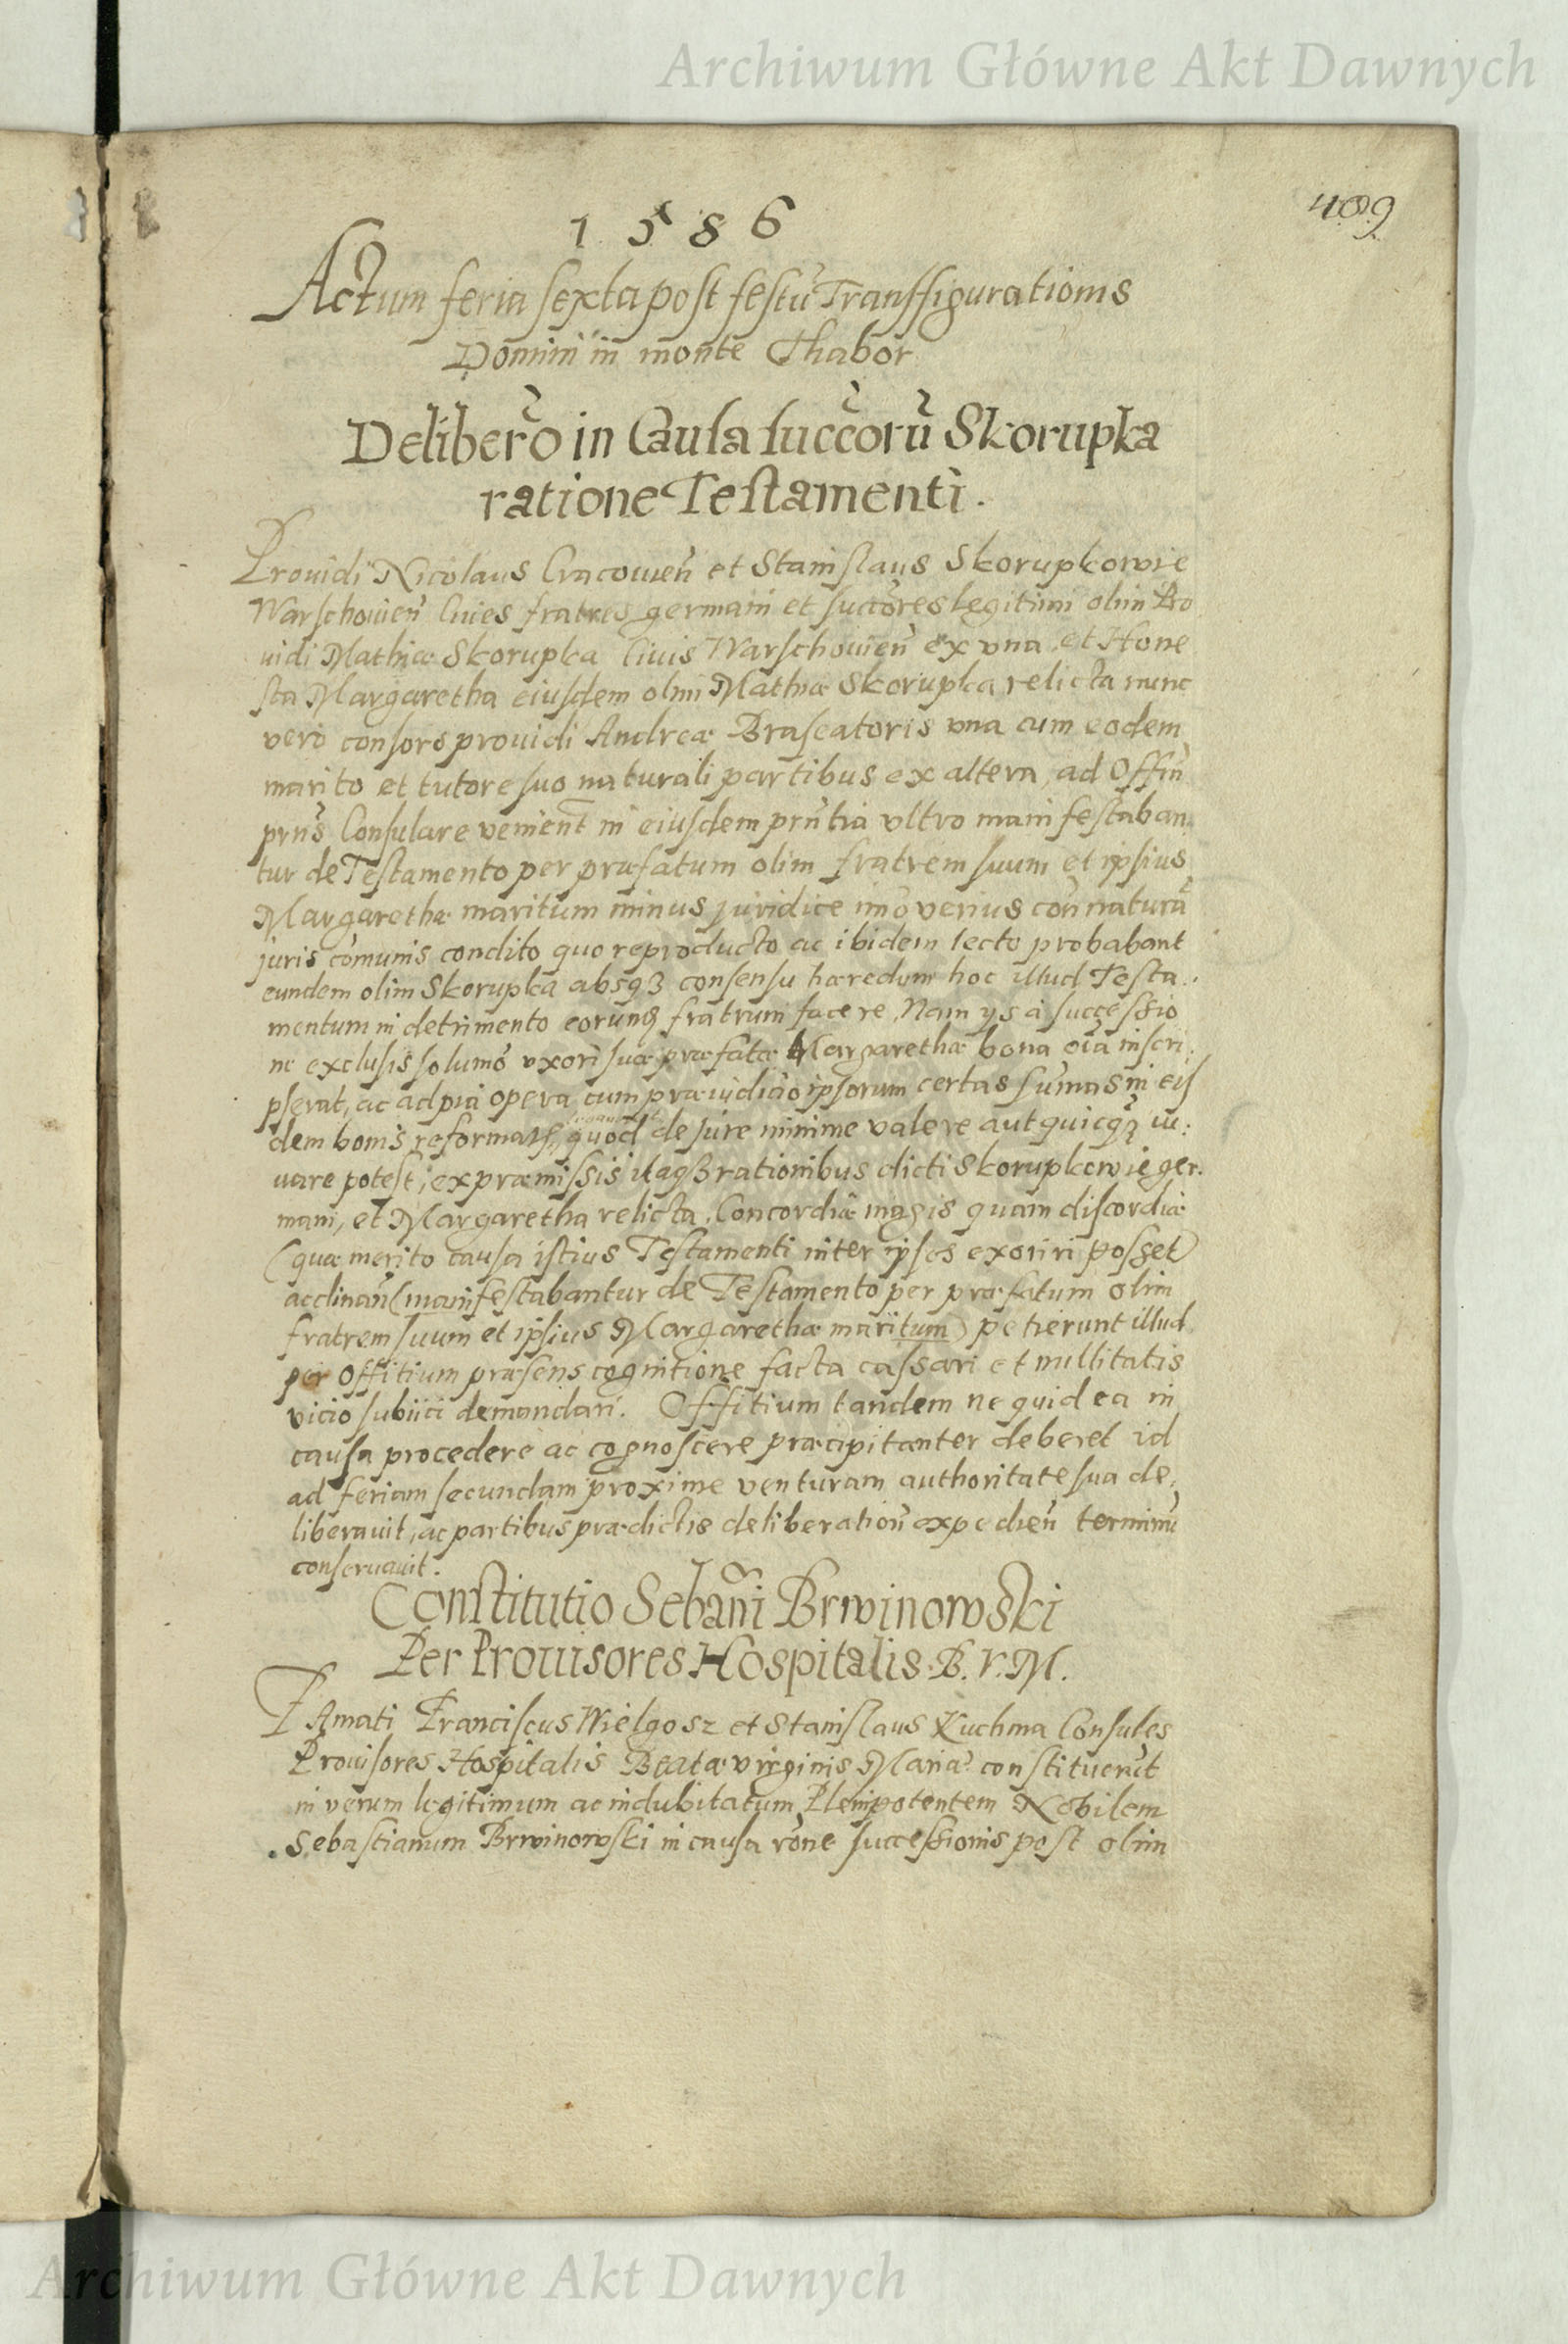 Archiwum Główne Akt Dawnych
409
1586
Actum feria sexta post festũ Transfigurationis
Domini in monte Thabor
Deliberõ in Causa succõrũ Skorupka
ratione Testamenti.
Prouidi Nicolaus Cracouien̄ et Stanislaus Skorupkowie
Warschouien̄ Ciues fratres germani et succōres legitimi olim Pro
uidi Mathiæ Skorupka Ciuis Warschouien̄ ex vna et Hone
sta Margaretha eiusdem olim Mathiæ Skorupka relicta nunc
vero consors prouidi Andreæ Braseatoris vna cum eodem
marito et tutore suo naturali partibus ex altera, ad Offin̄
prn̄s Consulare venien̄t in eiusdem prn̄tia vltro manifestaban
tur de Testamento per præfatum olim fratrem suum et ipsius
Margarethæ maritum minus juridice imò verius con̄ naturã
juris cōmunis condito quo reproducto ac ibidem lecto probabant
eundem olim Skorupka absqꝫ consensu hæredum hoc illud Testa.
mentum in detrimento eorunq̄ fratrum facere, Nam ijs à successio
ne exclusis solumō vxori suæ præfatæ Margarethæ bona oĩa inscri:
pserat, ac ad pia opera cum præiudicio ipsorum certas sum̄as in eis
dem bonis quod de jure minime valere aut quicq̄ iu:
uare potest, ex præmissis itaqꝫ rationibus dicti Skorupkowie ger.
mani, et Margaretha relicta, Concordiæ magis quam discordiæ
(quæ merito causa istius Testamenti inter ipsos exoriri posset)
acclinan̄ (manifestabantur de Testamento per præfatum olim
fratrem suum et ipsius Margarethæ maritum) petierunt illud
per Offitium præsens cognitione facta cassari et nullitatis
vicio subiici demandari. Offitium tandem ne quid ea in
causa procedere ac cognoscere præcipitanter deberet id
ad feriam secundam proxime venturam authoritate sua de,
liberauit, ac partibus prædictis deliberation̄ expedien̄ terminũ
conseruauit.
Constitutio Sebãni Brwinowski
Per Prouisores Hospitalis B. V. M.
FAmati Franciscus Wielgosz et Stanislaus Kuchma Consules
Prouisores Hospitalis Beatæ virginis Mariæ constituerũt
in verum legitimum ac indubitatum Plenipotentem Nobilem
Sebastianum Brwinowski in causa rōne successionis post olim
Archiwum Główne Akt Dawnych